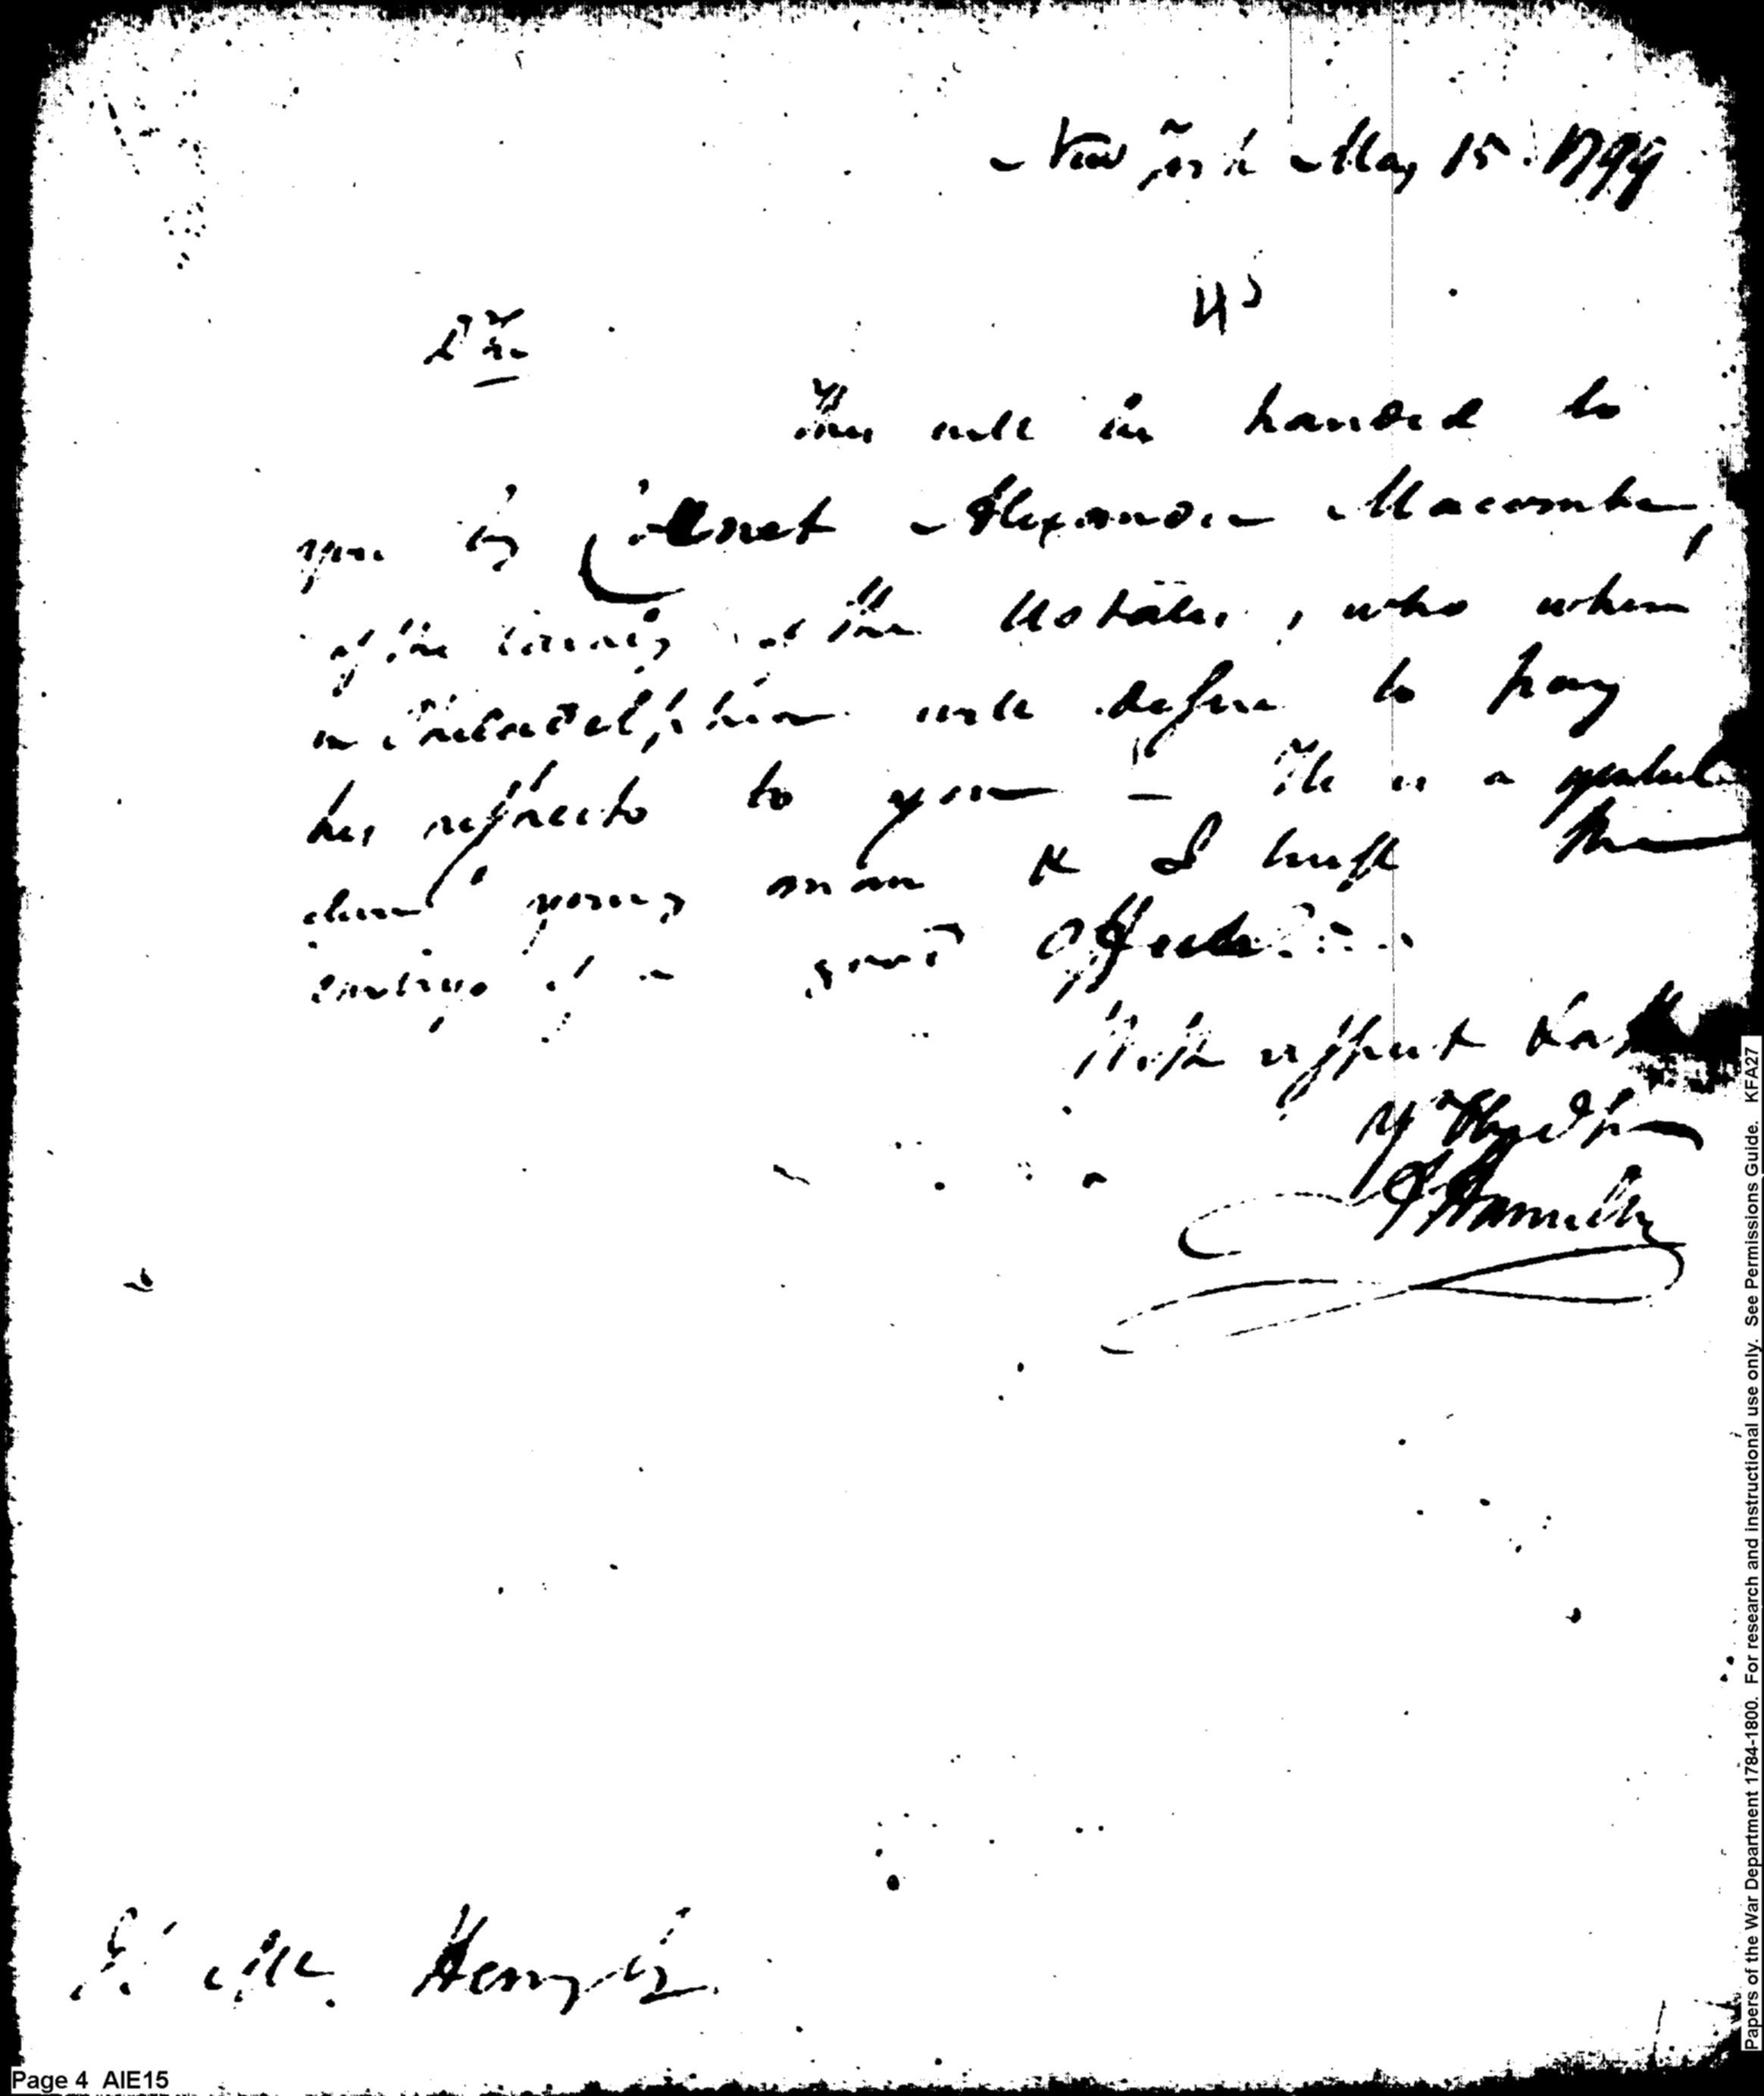 New York May 15. 1799
Sir
This will be handed to
you by Cornet Alexander Macomb,
of the Cavalry of the UStates, who when
in Philadelphia will desire to pay
his respects to you — He is a
young man & I trust the
of a good officer
With respect
Yr Obed Sr
A Hamilton
J Mc. Henry Esr.
Page 4 AIE15
Papers of the War Department 1784-1800. For research and instructional use only. See Permissions Guide. KFA27